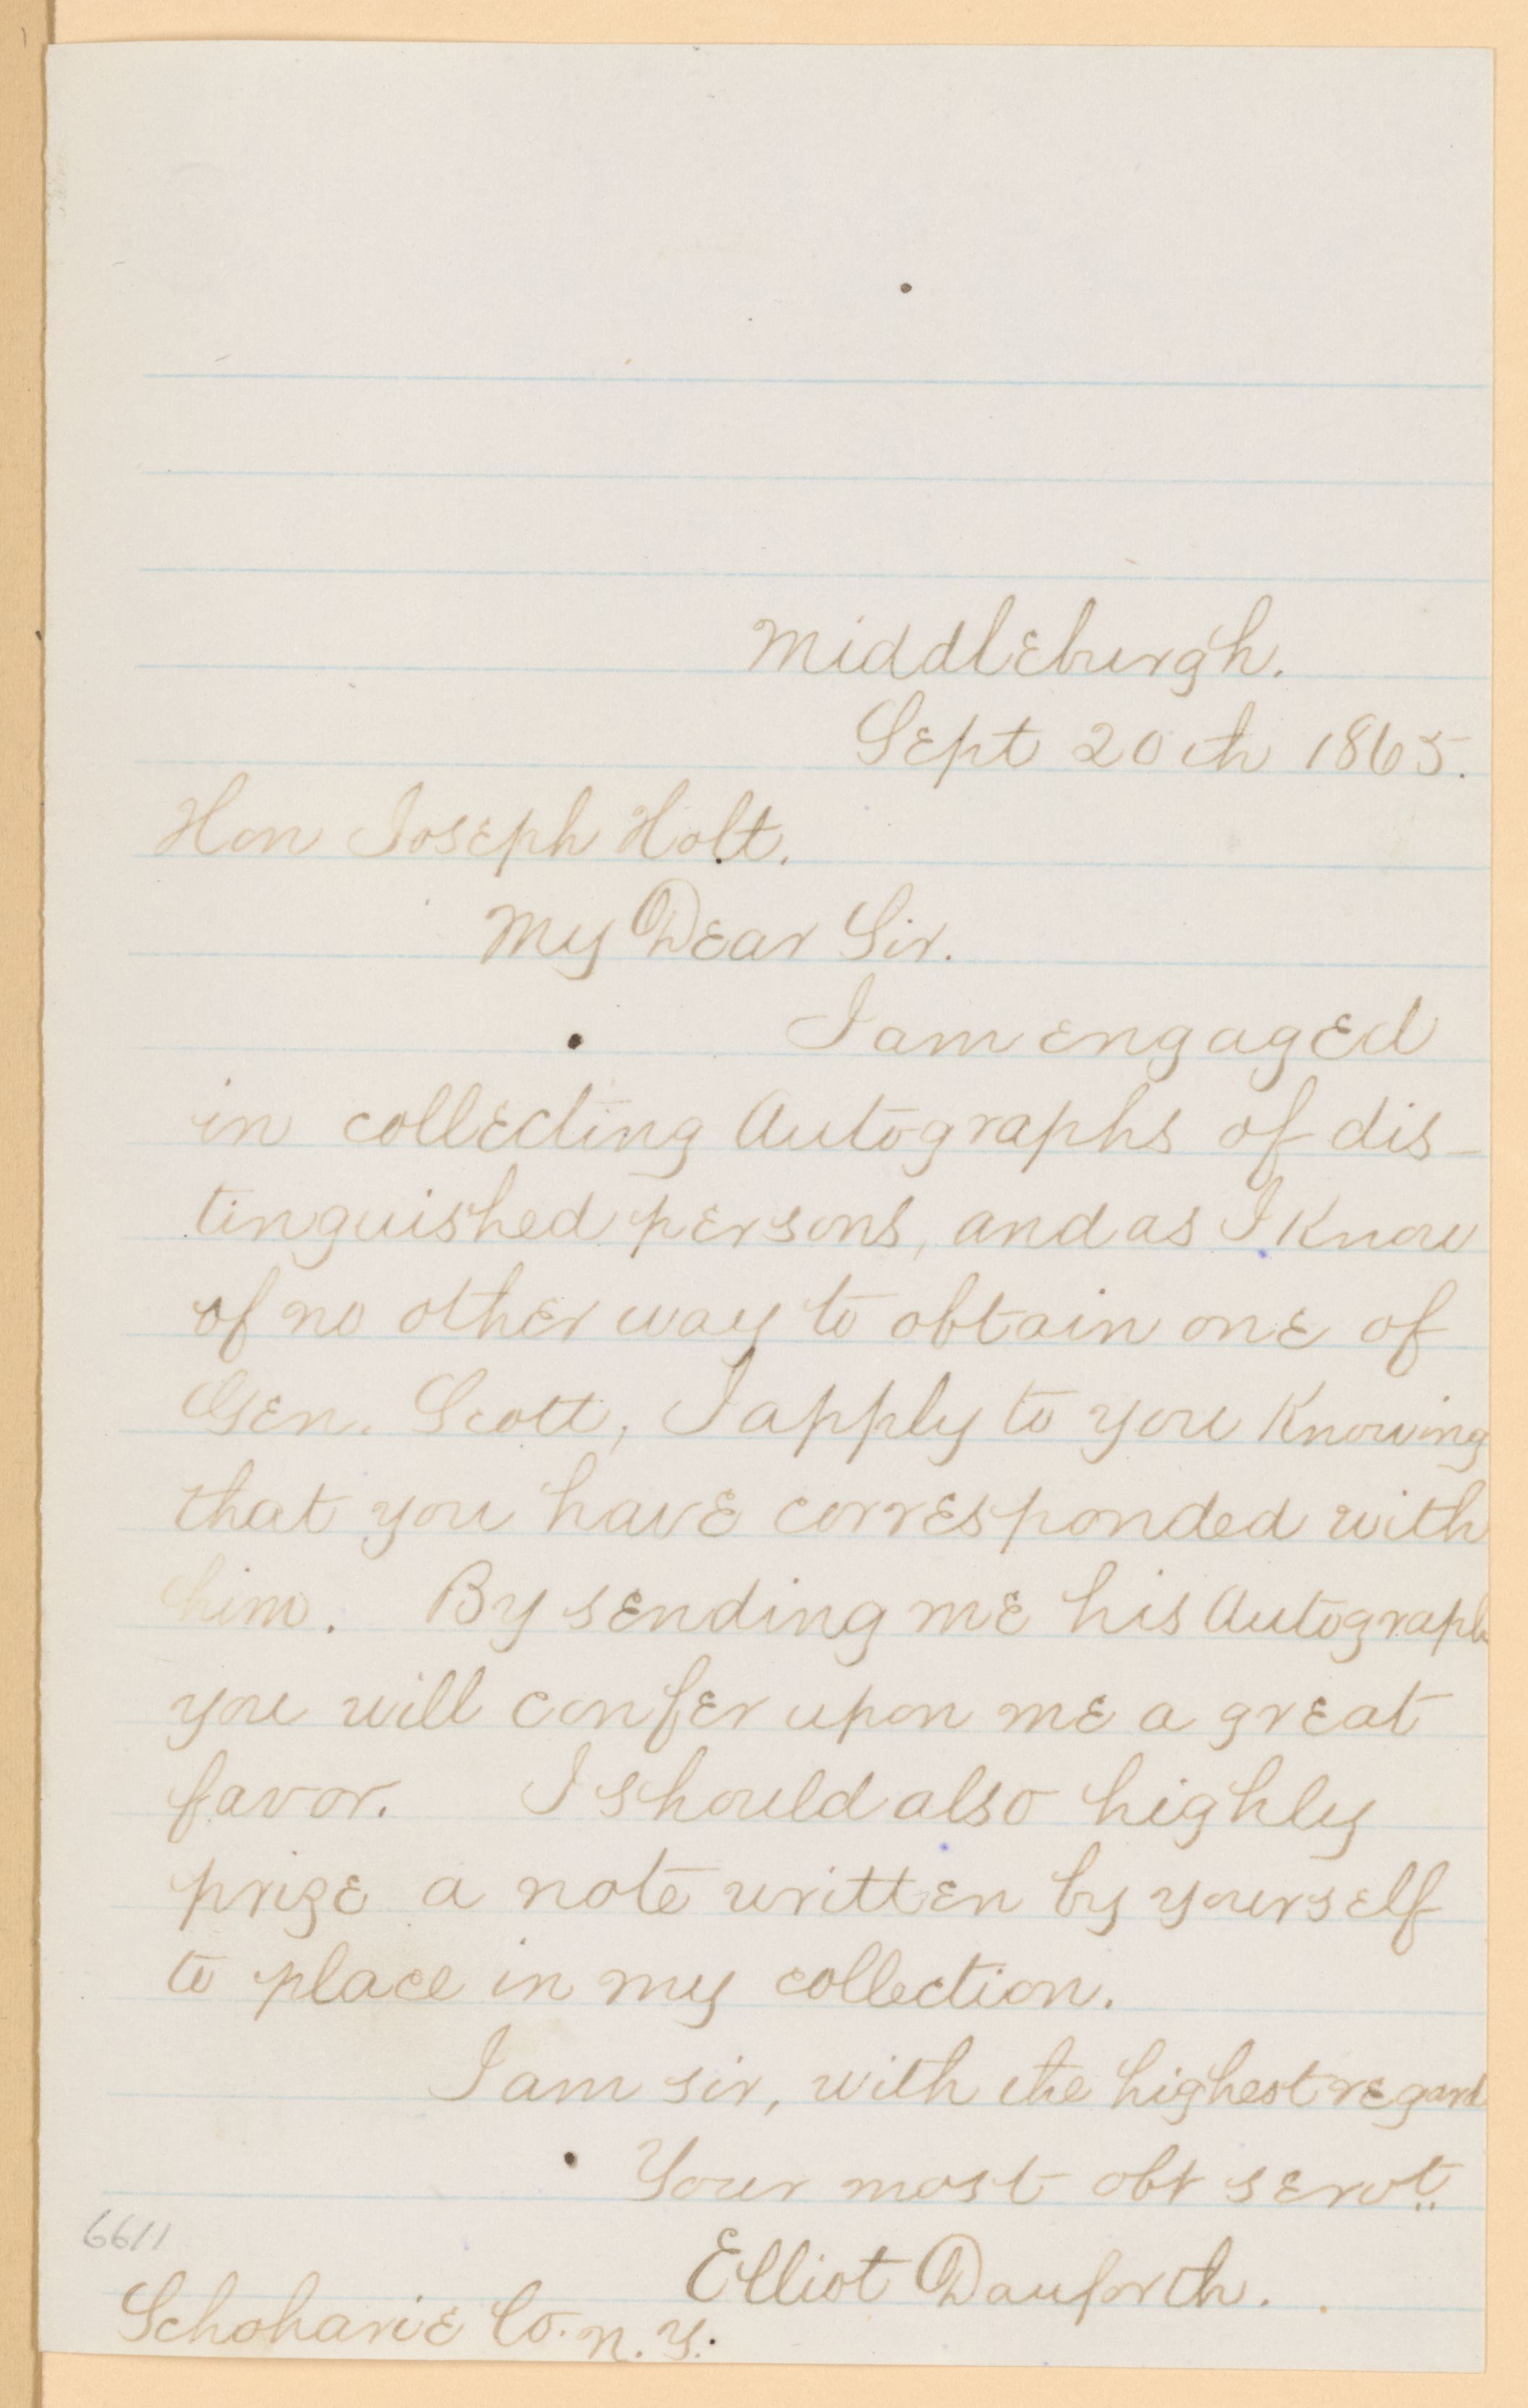 Middleburgh.
Sept 20th 1865.
Hon Joseph Holt.
My Dear Sir.
I am engaged
in collecting Autographs of dis-
tinguished persons, and as I Know
of no other way to obtain one of
Gen. Scott, I apply to you Knowing
that you have corresponded with
him. By sending me his Autograph
you will confer upon me a great
favor. I should also highly
prize a note written by yourself
to place in my collection.
I am sir, with the highest regard
Your most obt servt.
Elliot Danforth.
6611
Schoharie Co. N. Y.